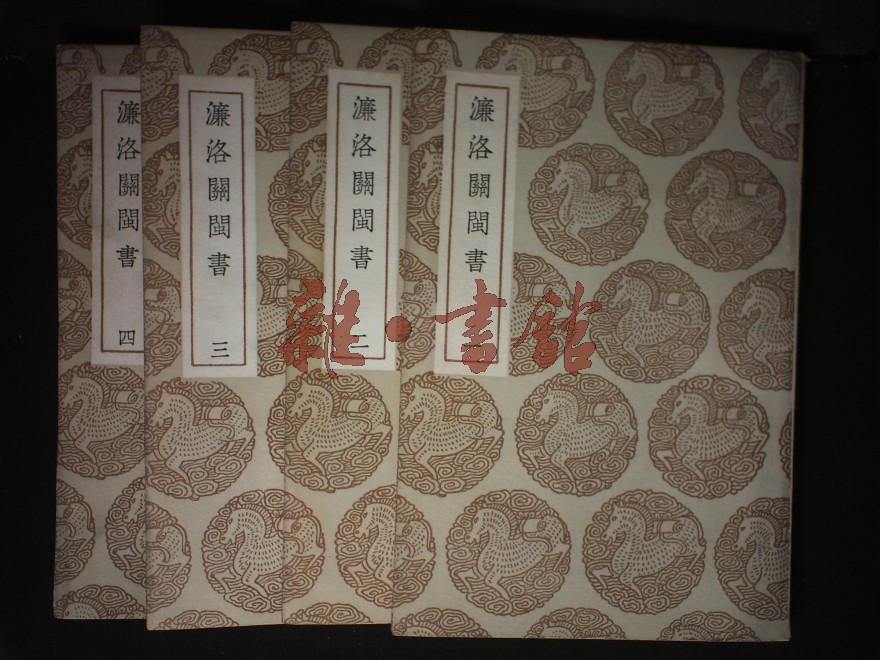 濂洛關閩書 一
濂洛關閩書 二
濂洛關閩書 三
濂洛關閩書 四
雜·書館